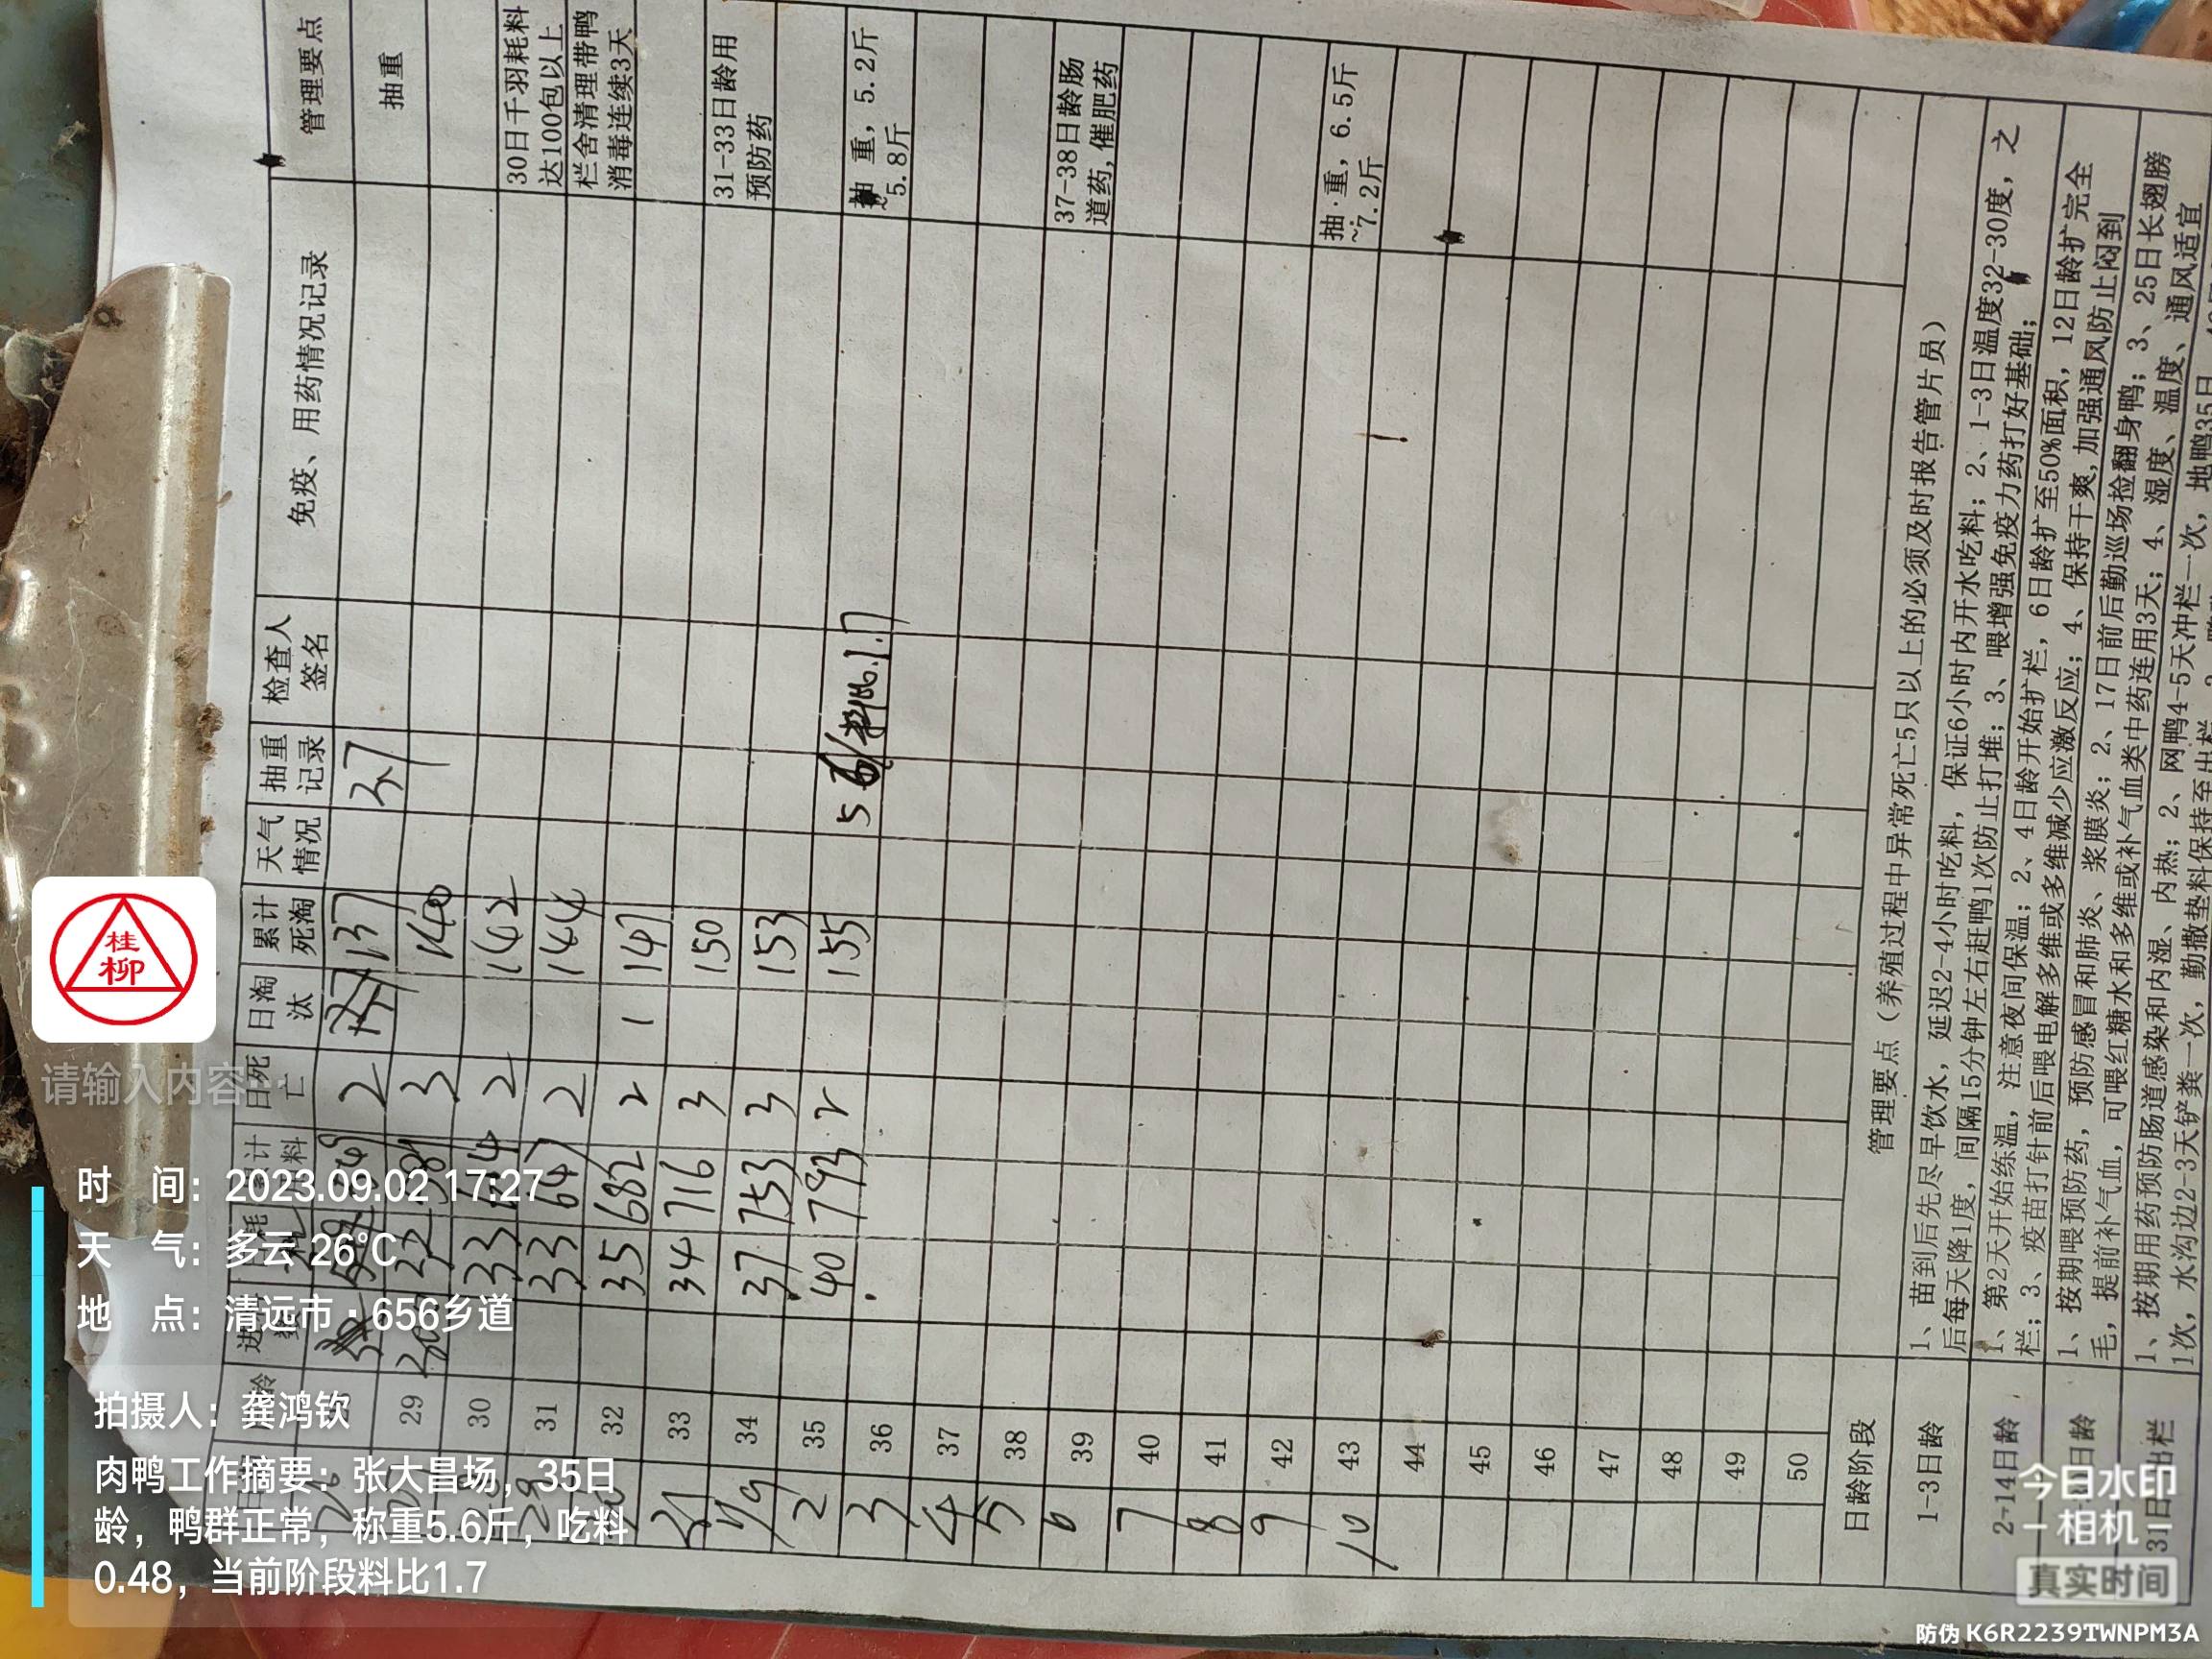 日龄
日死亡
日淘汰
累计死淘
天气情况
抽重记录
检查人签名
免疫、用药情况记录
管理要点
2 137 3.7 抽重
29 32 3 140
30 33 2 142 30日千羽耗料达100包以上
29 31 33 647 2 144 栏舍清理带鸭消毒连续3天
32 35 682 2 1 147
31 33 34 716 3 150 31-33日龄用预防药
1/9 34 37 753 3 153
2 35 40 793 2 155 5 料比1.7 抽重,5.2斤~5.8斤
3 36
4 37
5 38
6 39 37-38日龄肠道药,催肥药
7 40
8 41
9 42
10 43 抽重,6.5斤~7.2斤
44
45
46
47
48
49
50
日龄阶段 管理要点(养殖过程中异常死亡5只以上的必须及时报告管片员)
1-3日龄 1、苗到后先尽早饮水,延迟2-4小时吃料,保证6小时内开水吃料;2、1-3日温度32-30度,之
后每天降1度,间隔15分钟左右赶鸭1次防止打堆;3、喂增强免疫力药打好基础;
2-14日龄 1、第2天开始练温,注意夜间保温;2、4日龄开始扩栏,6日龄扩至50%面积,12日龄扩完全
栏;3、疫苗打针前后喂电解多维或多维减少应激反应;4、保持干爽,加强通风防止闷到
日龄 1、按期喂预防药,预防感冒和肺炎、浆膜炎;2、17日前后勤巡场捡翻身鸭;3、25日长翅膀
毛,提前补气血,可喂红糖水和多维或补气血类中药连用3天;4、湿度、温度、通风适宜
31日 出栏 1、按期用药预防肠道感染和内湿、内热;2、网鸭4-5天冲栏一次,地鸭35日
1次,水沟边2-3天铲粪一次,勤撒垫料保持至出栏
桂柳
请输入内容
时 间:2023.09.02 17:27
天 气:多云 26℃
地 点:清远市·656乡道
拍摄人:龚鸿钦
肉鸭工作摘要:张大昌场,35日
龄,鸭群正常,称重5.6斤,吃料
0.48,当前阶段料比1.7
今日水印
相机
真实时间
防伪 K6R2239TWNPM3A